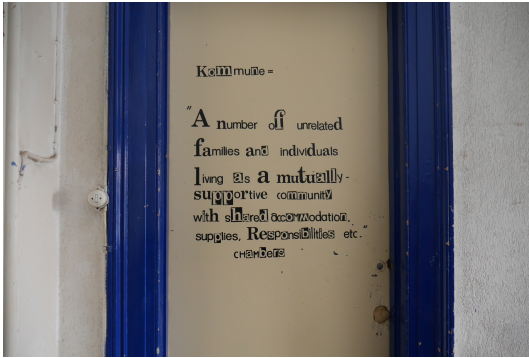 Kommune =
"A number off unrelated
families and individuals
living as a mutually-
supportive community
with shared accommodation,
supplies, Responsibilities etc."
chambers